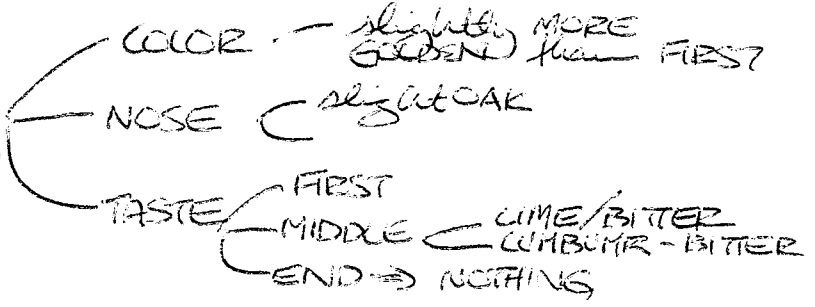 COLOR - slightly MORE
GOLDEN than FIRST
NOSE slight OAK
TASTE FIRST
MIDDLE LIME/BITTER
- BITTER
END → NOTHING